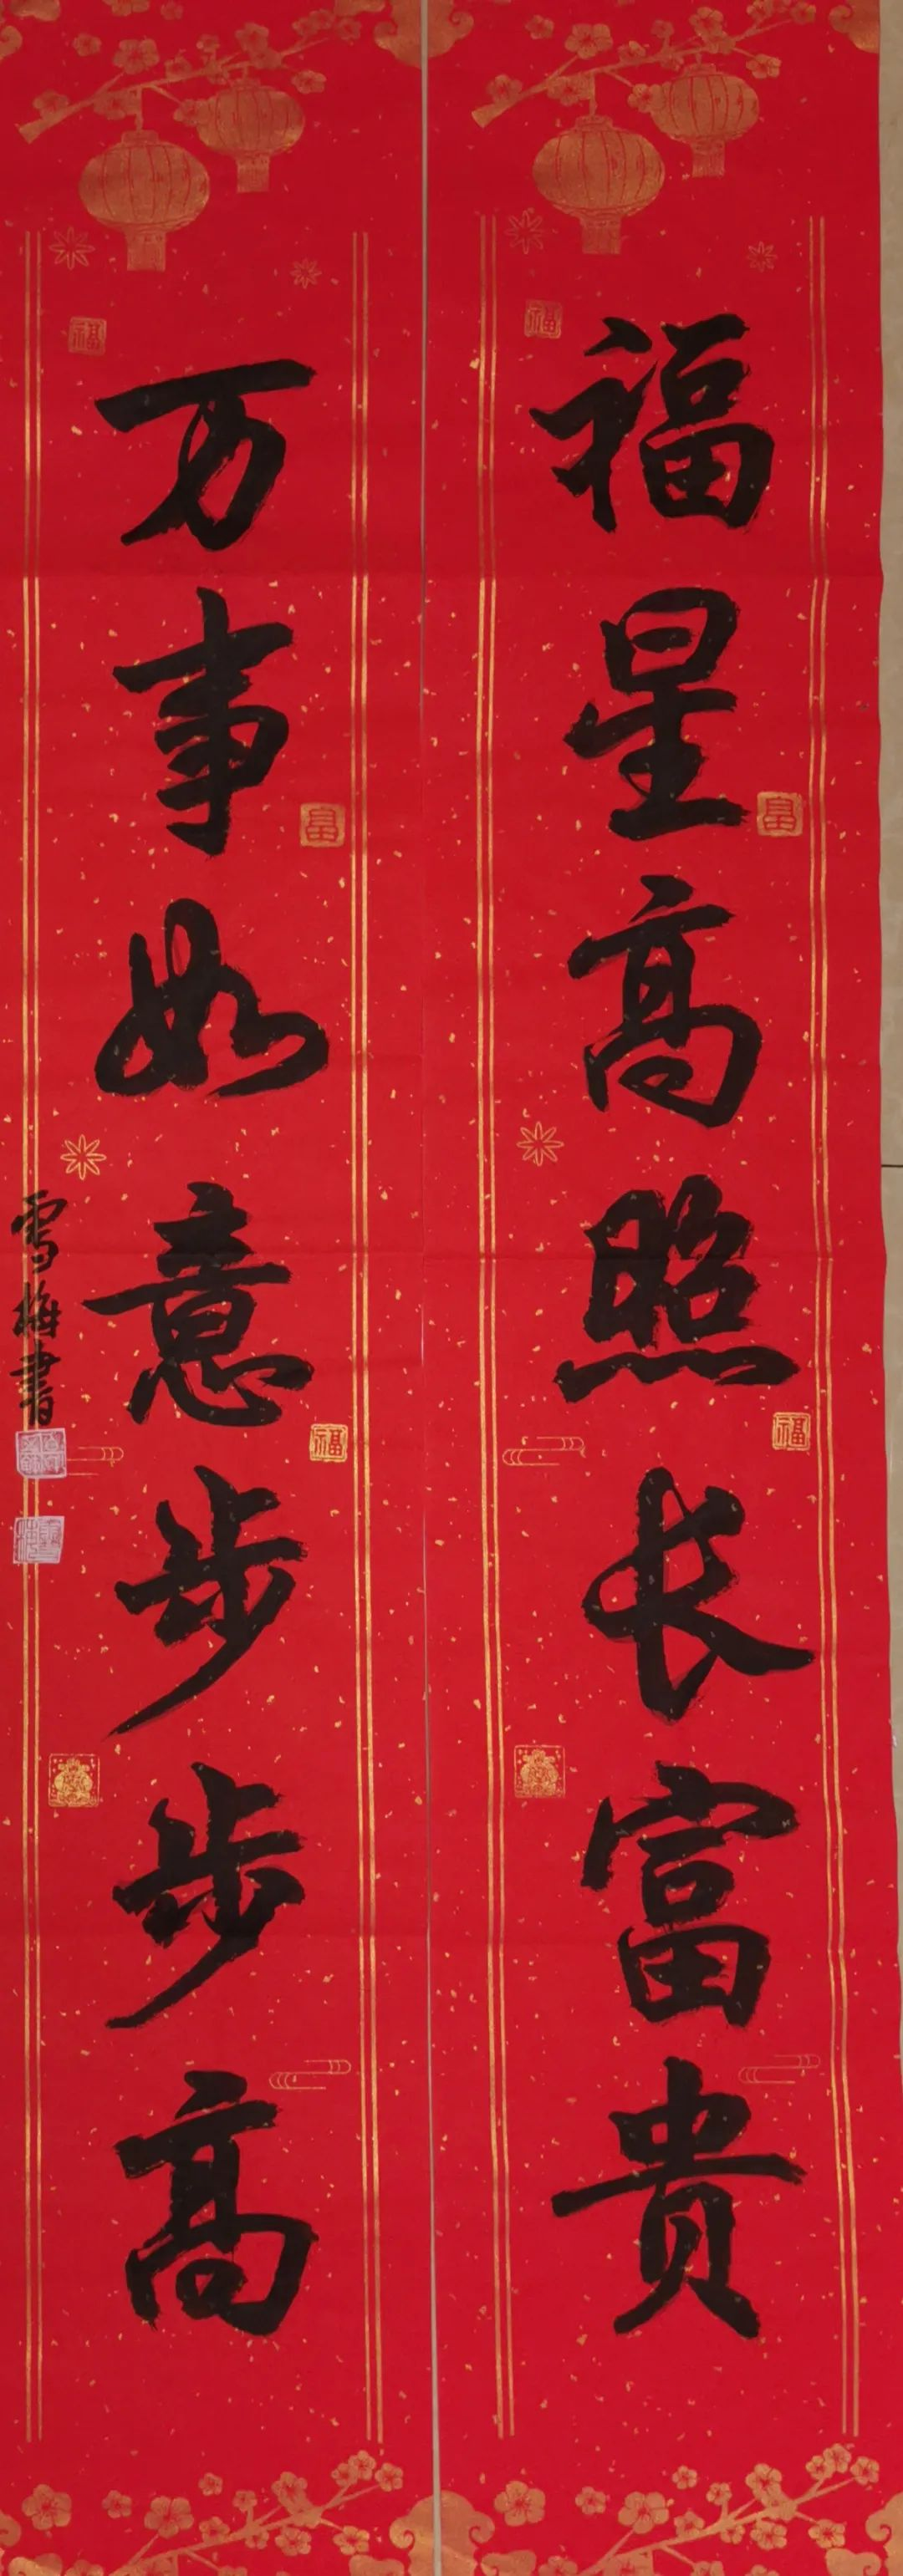 福星高照长富贵
万事如意步步高
雪梅書
福
富
福
福
富
福